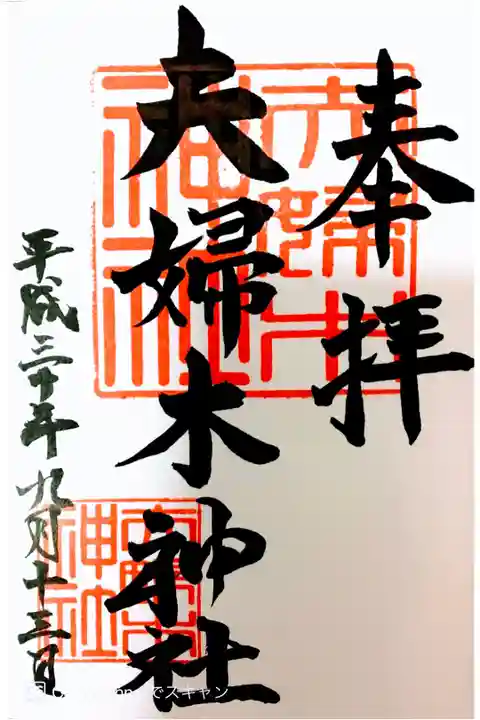 奉拝
夫婦木神社
平成三十年九月十三日
でスキャン